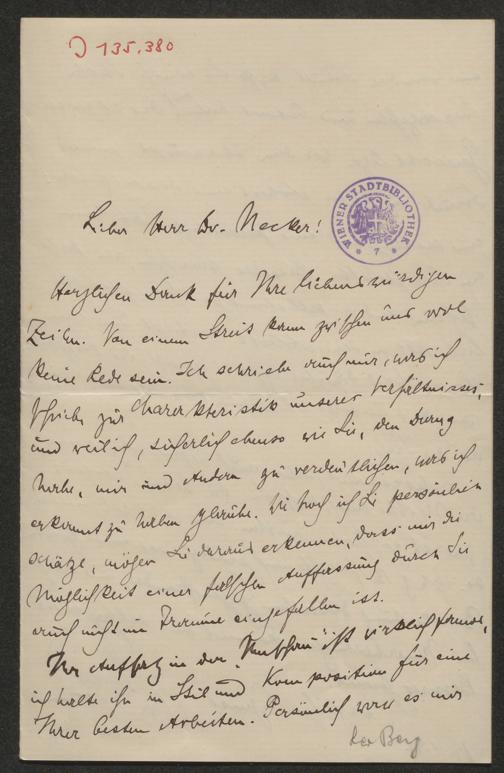 J 135.380
WIENER STADTBIBLIOTHEK
7
Lieber Herr Dr. Necker!
Herzlichen Dank für Ihre liebenswürdigen
Zeilen. Von einem Streit kann zwischen uns wol
keine Rede sein. Ich schrieb auch nur, was ich
schrieb zur Charakteristik unserer Verhältnisse,
und weil ich, sicherlich ebenso wie Sie, den Drang
habe, mir und Andern zu verdeutlichen, was ich
erkannt zu haben glaube. Wie hoch ich Sie persönlich
schätze, mögen Sie daraus erkennen, dass mir die
Möglichkeit einer falschen Auffassung durch Sie
auch nicht im Traume eingefallen ist.
Ihr Aufsatz in der ist wirklich famos,
ich halte ihn in Stil und Komposition für eine
Ihrer besten Arbeiten. Persönlich war es mir
Leo Berg